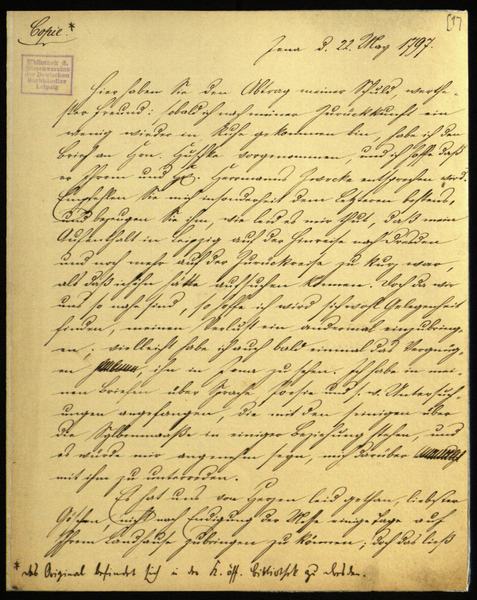 Copie *
[1]
Bibliothek d.
Börsenvereins
der Deutschen
Buchhändler
Leipzig
Jena d. 22. May 1797.
Hier haben Sie den Abtrag meiner Schuld, werthe-
ster Freund: sobald ich nach meiner Zurückkunft ein
wenig wieder in Ruhe gekommen bin, habe ich den
Brief an Hrn. Huschke vorgenommen, und ich hoffe daß
er Ihrem und Hr. Herrmanns Zwecke entsprechen wird.
Empfehlen Sie mich insonderheit dem Letzteren bestens,
und bezeugen Sie ihm, wie leid es mir thut, daß mein
Aufenthalt in Leipzig auf der Hinreise nach Dresden
und noch mehr auf der Rückreise zu kurz war,
als daß ich ihn hätte aufsuchen können. Doch da wir
uns so nahe sind, so hoffe ich wird sich wohl Gelegenheit
finden, meinen Verlust ein andermal einzubring-
en, vielleicht habe ich auch bald einmal das Vergnüg-
en ihn in Jena zu sehen. Ich habe in mei-
nen Briefen über Sprache Poesie und s. w. Untersuch-
ungen angefangen, die mit den seinigen über
die Sylbenmaaße in einiger Beziehung stehen, und
es würde mir angenehm seyn, mich darüber
mit ihm zu unterreden.
Es hat uns von Herzen leid gethan, liebster
Göschen, nicht nach Endigung der Messe einige Tage auf
Ihrem Landhause zubringen zu können, doch das ließ
* das Original befindet sich in der K. öff. Bibliothek zu Dresden.